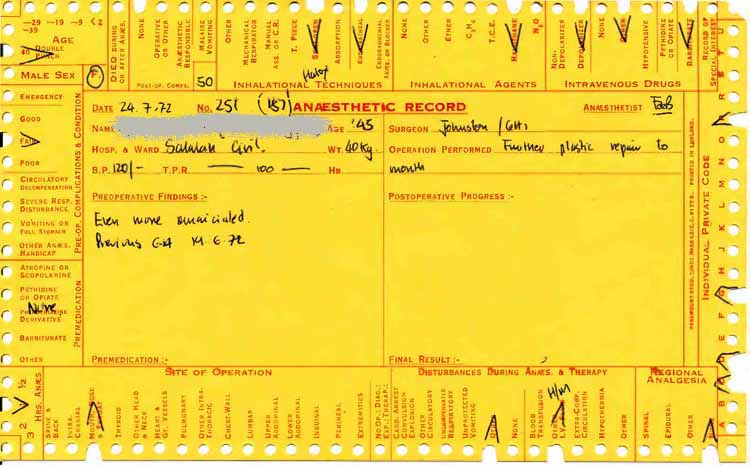 -29 -19 -9 < 2
-39
AGE
40 DOUBLE PUNCH
MALE SEX F.
DIED DURING OR AFTER ANÆS.
NONE
OPERATIVE OR OTHER
ANÆSTHETIC RESPONSIBLE
MALAISE VOMITING
POST-OP. COMPS.
50
OTHER
MECHANICAL RESPIRATOR
MANUAL ASS. OF C.R.
T. PIECE
ABSORPTION
ENDOTRACHEAL
INHALATIONAL TECHNIQUES
NONE
OTHER
ETHER
C3H6
T.C.E.
HALOTHANE
N2O
INHALATIONAL AGENTS
NON-DEPOLARIZER
DEPOLARIZER
NONE
OTHER
HYPOTENSIVE
PETHIDINE OR OPIATE
BARBITURATE
INTRAVENOUS DRUGS
RECORD OF SPECIAL INTEREST
EMERGENCY
GOOD
FAIR
POOR
CIRCULATORY DECOMPENSATION
SEVERE RESP. DISTURBANCE
VOMITING OR FULL STOMACH
OTHER ANÆS. HANDICAP
PRE-OP. COMPLICATIONS & CONDITION
ATROPINE OR SCOPOLAMINE
PETHIDINE OR OPIATE
DERIVATIVE
BARBITURATE
OTHER
PREMEDICATION
DATE 24.7.72 NO. 251 (157) ANÆSTHETIC RECORD ANÆSTHETIST
NAME AGE '45 SURGEON Johnston
HOSP. & WARD Civil. WT. 40 Kg. OPERATION PERFORMED Further plastic repair to
B.P. 120/- T.P.R. — 100 — HB. mouth
PREOPERATIVE FINDINGS :- POSTOPERATIVE PROGRESS :-
Even more emaciated.
Previous GA 14.6.72
PREMEDICATION:- FINAL RESULT:-
PRINTED IN ENGLAND.
INDIVIDUAL PRIVATE CODE
SITE OF OPERATION
DISTURBANCES DURING ANÆS. & THERAPY
REGIONAL ANALGESIA
3 2 ½
HRS. ANÆS.
SPINE & BACK
INTRA-CRANIAL
THYROID
OTHER HEAD & NECK
HEART & GT. VESSELS
PULMONARY
OTHER INTRA-THORACIC
CHEST-WALL
LUMBAR
UPPER ABDOMINAL
LOWER ABDOMINAL
INGUINAL
PERINEAL
EXTREMITIES
NO OP.: DIAG.: EXP.: THERAP.:
CARD. ARREST
CONVULSION EXPLOSION
OTHER CIRCULATORY
UNCOMPENSATED RESPIRATORY
UNPROTECTED VOMITING
OTHER
NONE
BLOOD TRANSFUSION
EXTRA-CORP. CIRCULATION
HYPOTHERMIA
OTHER
SPINAL
EPIDURAL
OTHER